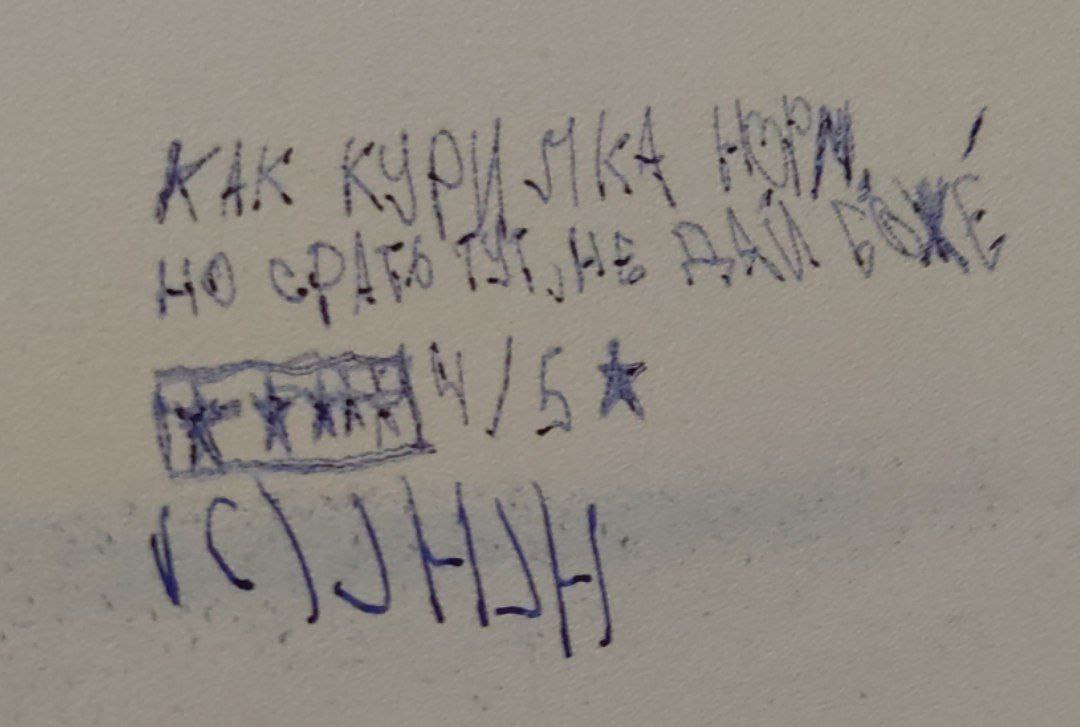 КАК КУРИЛКА НОРМ,
НО СРАТЬ ТУТ, НЕ ДАЙ БОЖЕ
★★★★★ 4/5★
(C) JHJH